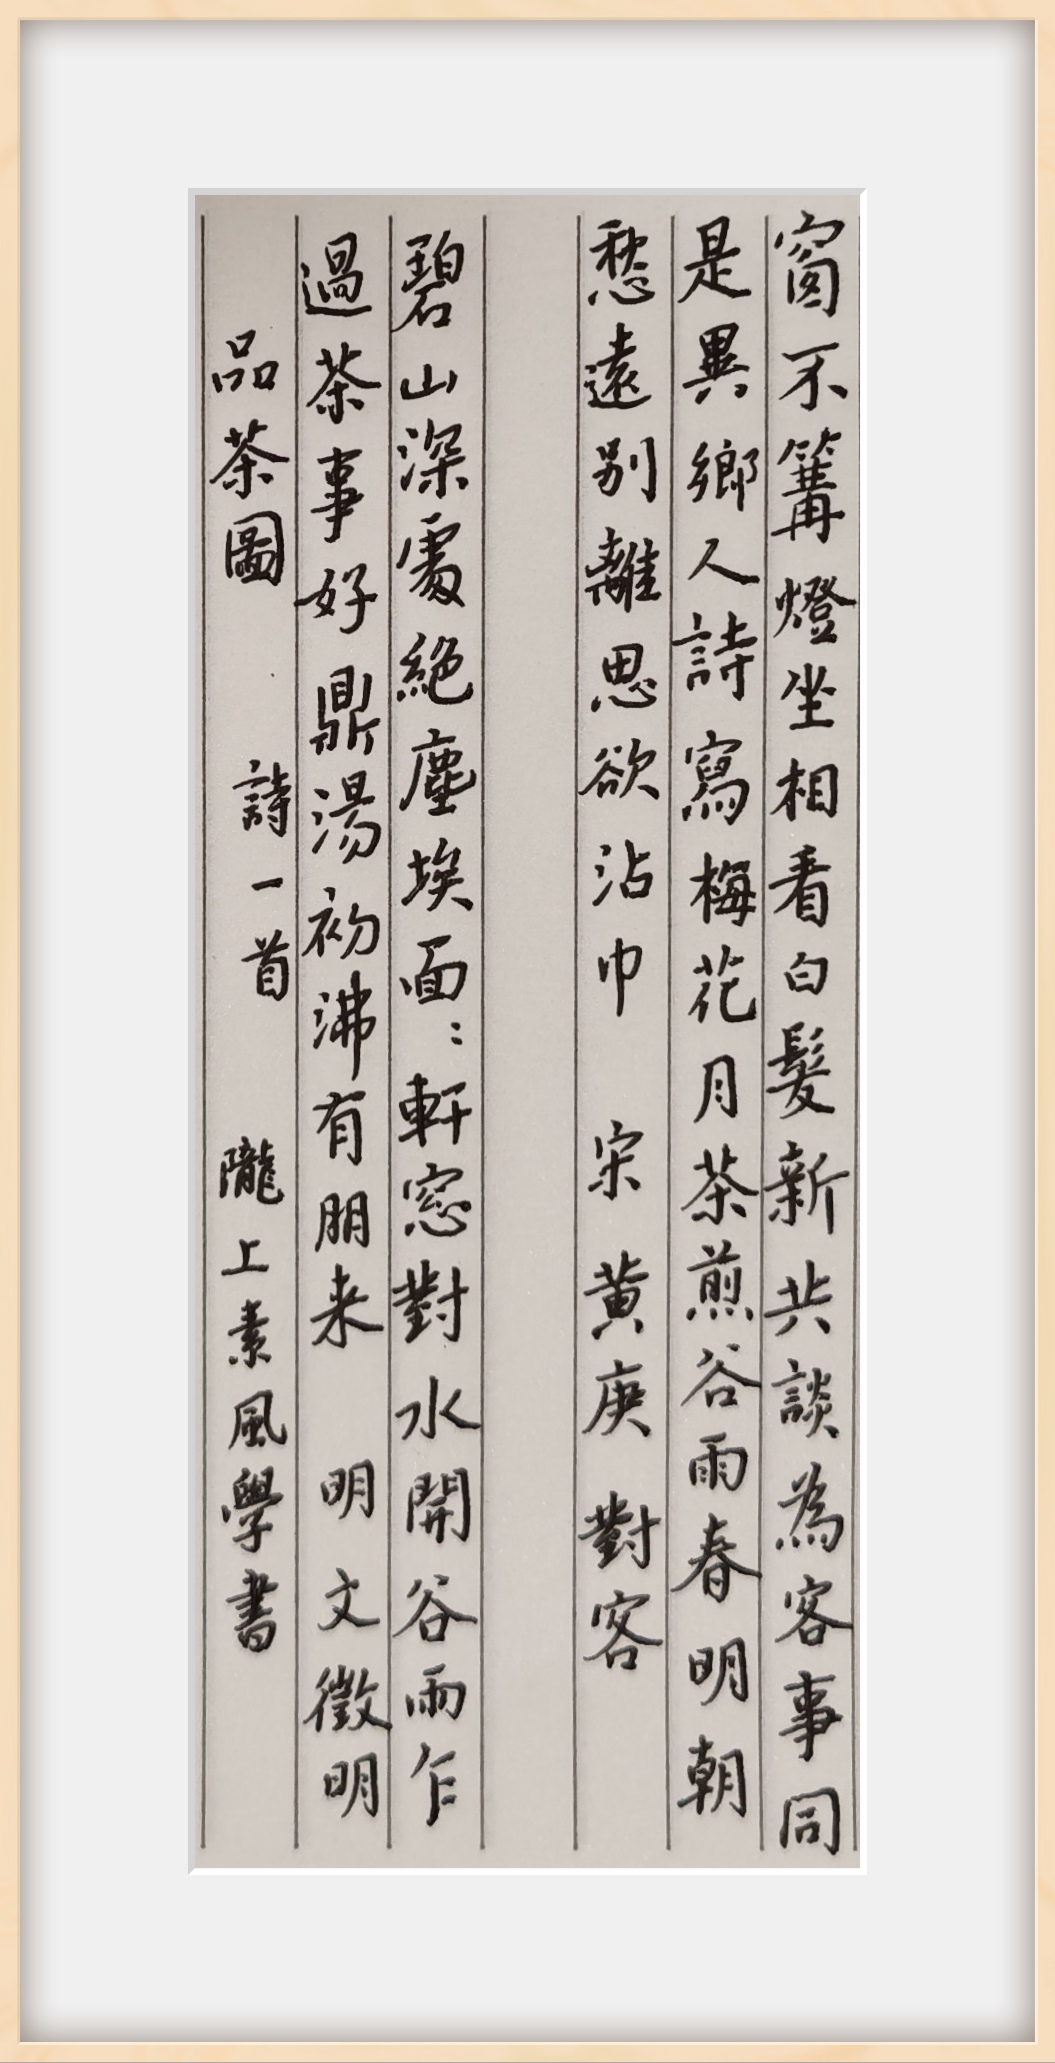 窗不篝燈坐相看白髮新共談為客事同
是異鄉人詩寫梅花月茶煎谷雨春明朝
愁遠別離思欲沾巾 宋 黄庚 對客
碧山深處絕塵埃面〻軒窓對水開谷雨乍
過茶事好鼎湯初沸有朋来 明 文徵明
品茶圖 詩一首 隴上素風學書